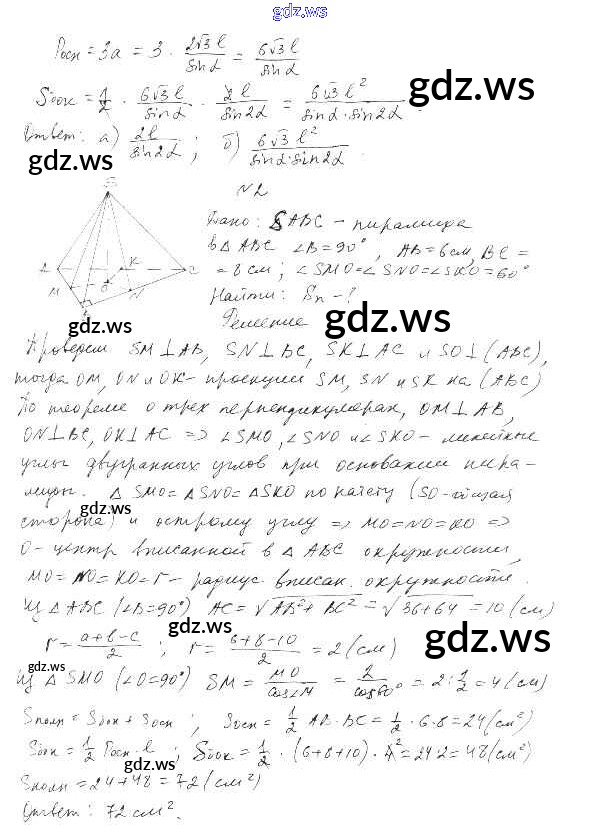 gdz.ws
Pосн = 3a = 3 · 2√3 l / sin α = 6√3 l / sin α
Sбок = 1/2 · 6√3 l / sin α · 2l / sin 2α = 6√3 l² / sin α · sin 2α
gdz.ws
Ответ: а) 2l / sin 2α ; б) 6√3 l² / sin α · sin 2α .
gdz.ws
N2
Дано: SABC – пирамида
в Δ ABC ∠B = 90°, AB = 6 см, BC =
= 8 см; ∠SMO = ∠SNO = ∠SKO = 60°
Найти: Sп – ?
Решение
A K C M O N
gdz.ws
gdz.ws
Проведем SM ⊥ AB, SN ⊥ BC, SK ⊥ AC и SO ⊥ (ABC),
тогда OM, ON и OK – проекции SM, SN и SK на (ABC)
По теореме о трех перпендикулярах, OM ⊥ AB,
ON ⊥ BC, OK ⊥ AC => ∠SMO, ∠SNO и ∠SKO – линейные
углы двугранных углов при основании пира-
миды. Δ SMO = Δ SNO = Δ SKO по катету (SO – общая
gdz.ws
сторона) и острому углу => MO = NO = KO =>
O – центр вписанной в Δ ABC окружности,
MO = NO = KO = r – радиус вписан. окружности.
Из Δ ABC (∠B = 90°) AC = √AB² + BC² = √36+64 = 10 (см)
gdz.ws
gdz.ws
r = a+b-c / 2 ; r = 6+8-10 / 2 = 2 (см)
gdz.ws
Из Δ SMO (∠O = 90°) SM = MO / cos∠M = 2 / cos60° = 2 : 1/2 = 4 (см)
Sполн = Sбок + Sосн ; Sосн = 1/2 AB · BC = 1/2 · 6 · 8 = 24 (см²)
Sбок = 1/2 Pосн · l ; Sбок = 1/2 · (6+8+10) · 4² = 24·2 = 48 (см²)
gdz.ws
Sполн = 24 + 48 = 72 (см²)
Ответ: 72 см².
gdz.ws